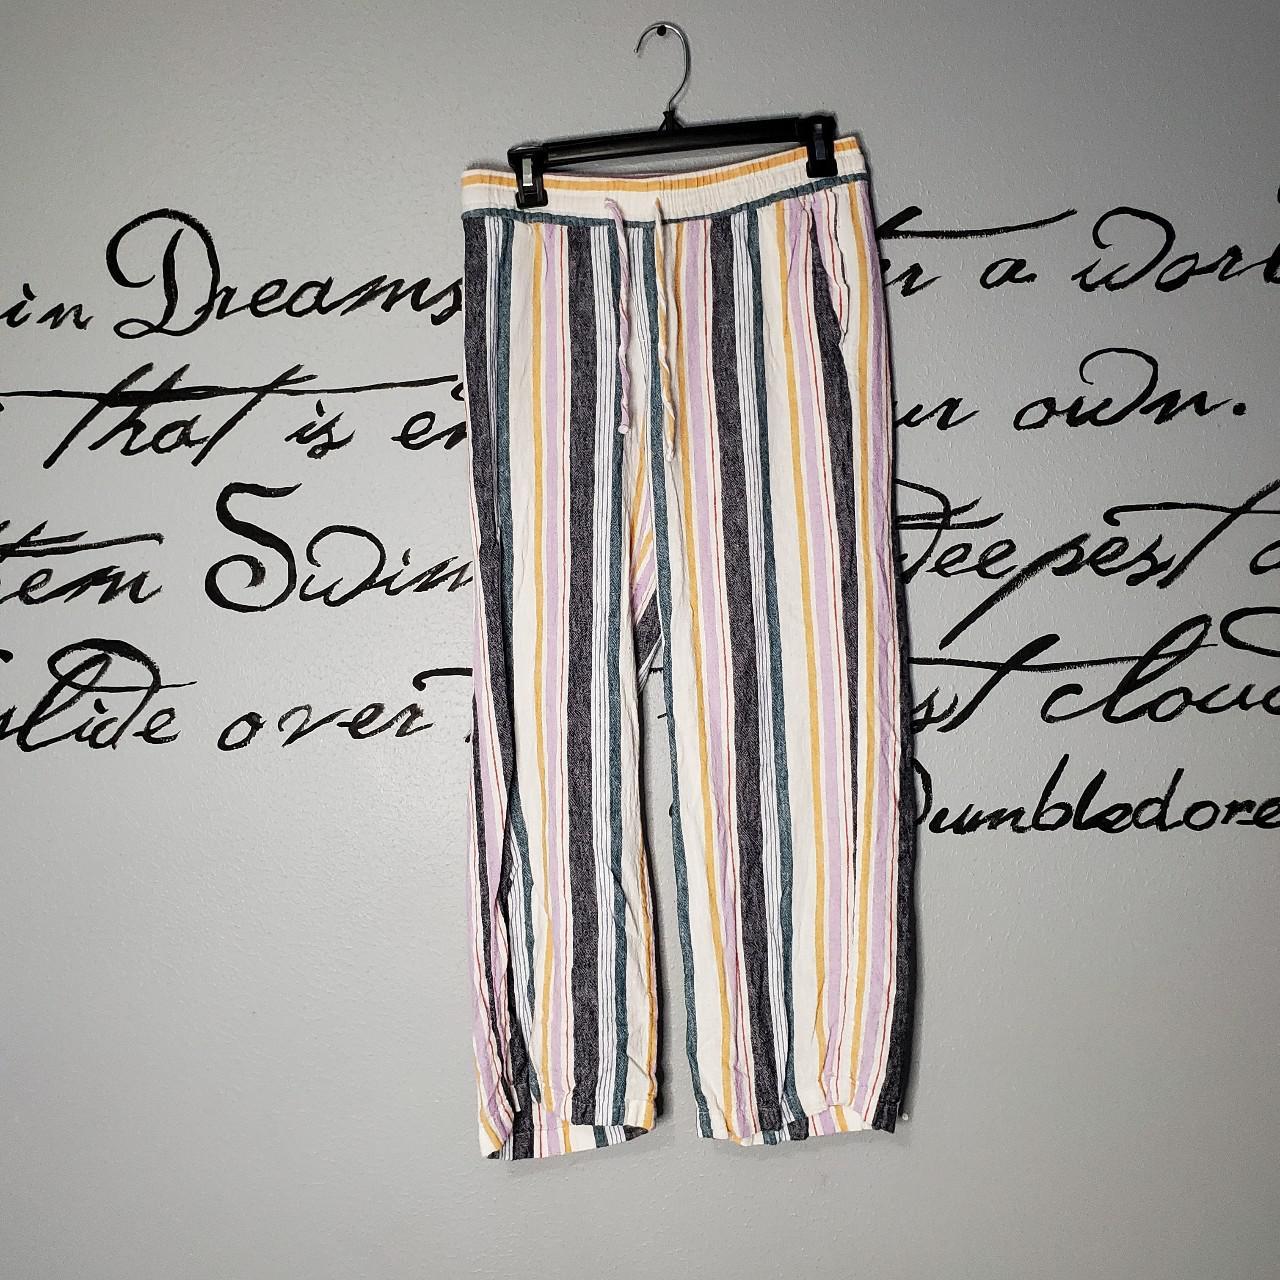 in Dreams er a worl
that is en ur own.
tem Swim Deepest o
slide over st cloud
Dumbledore